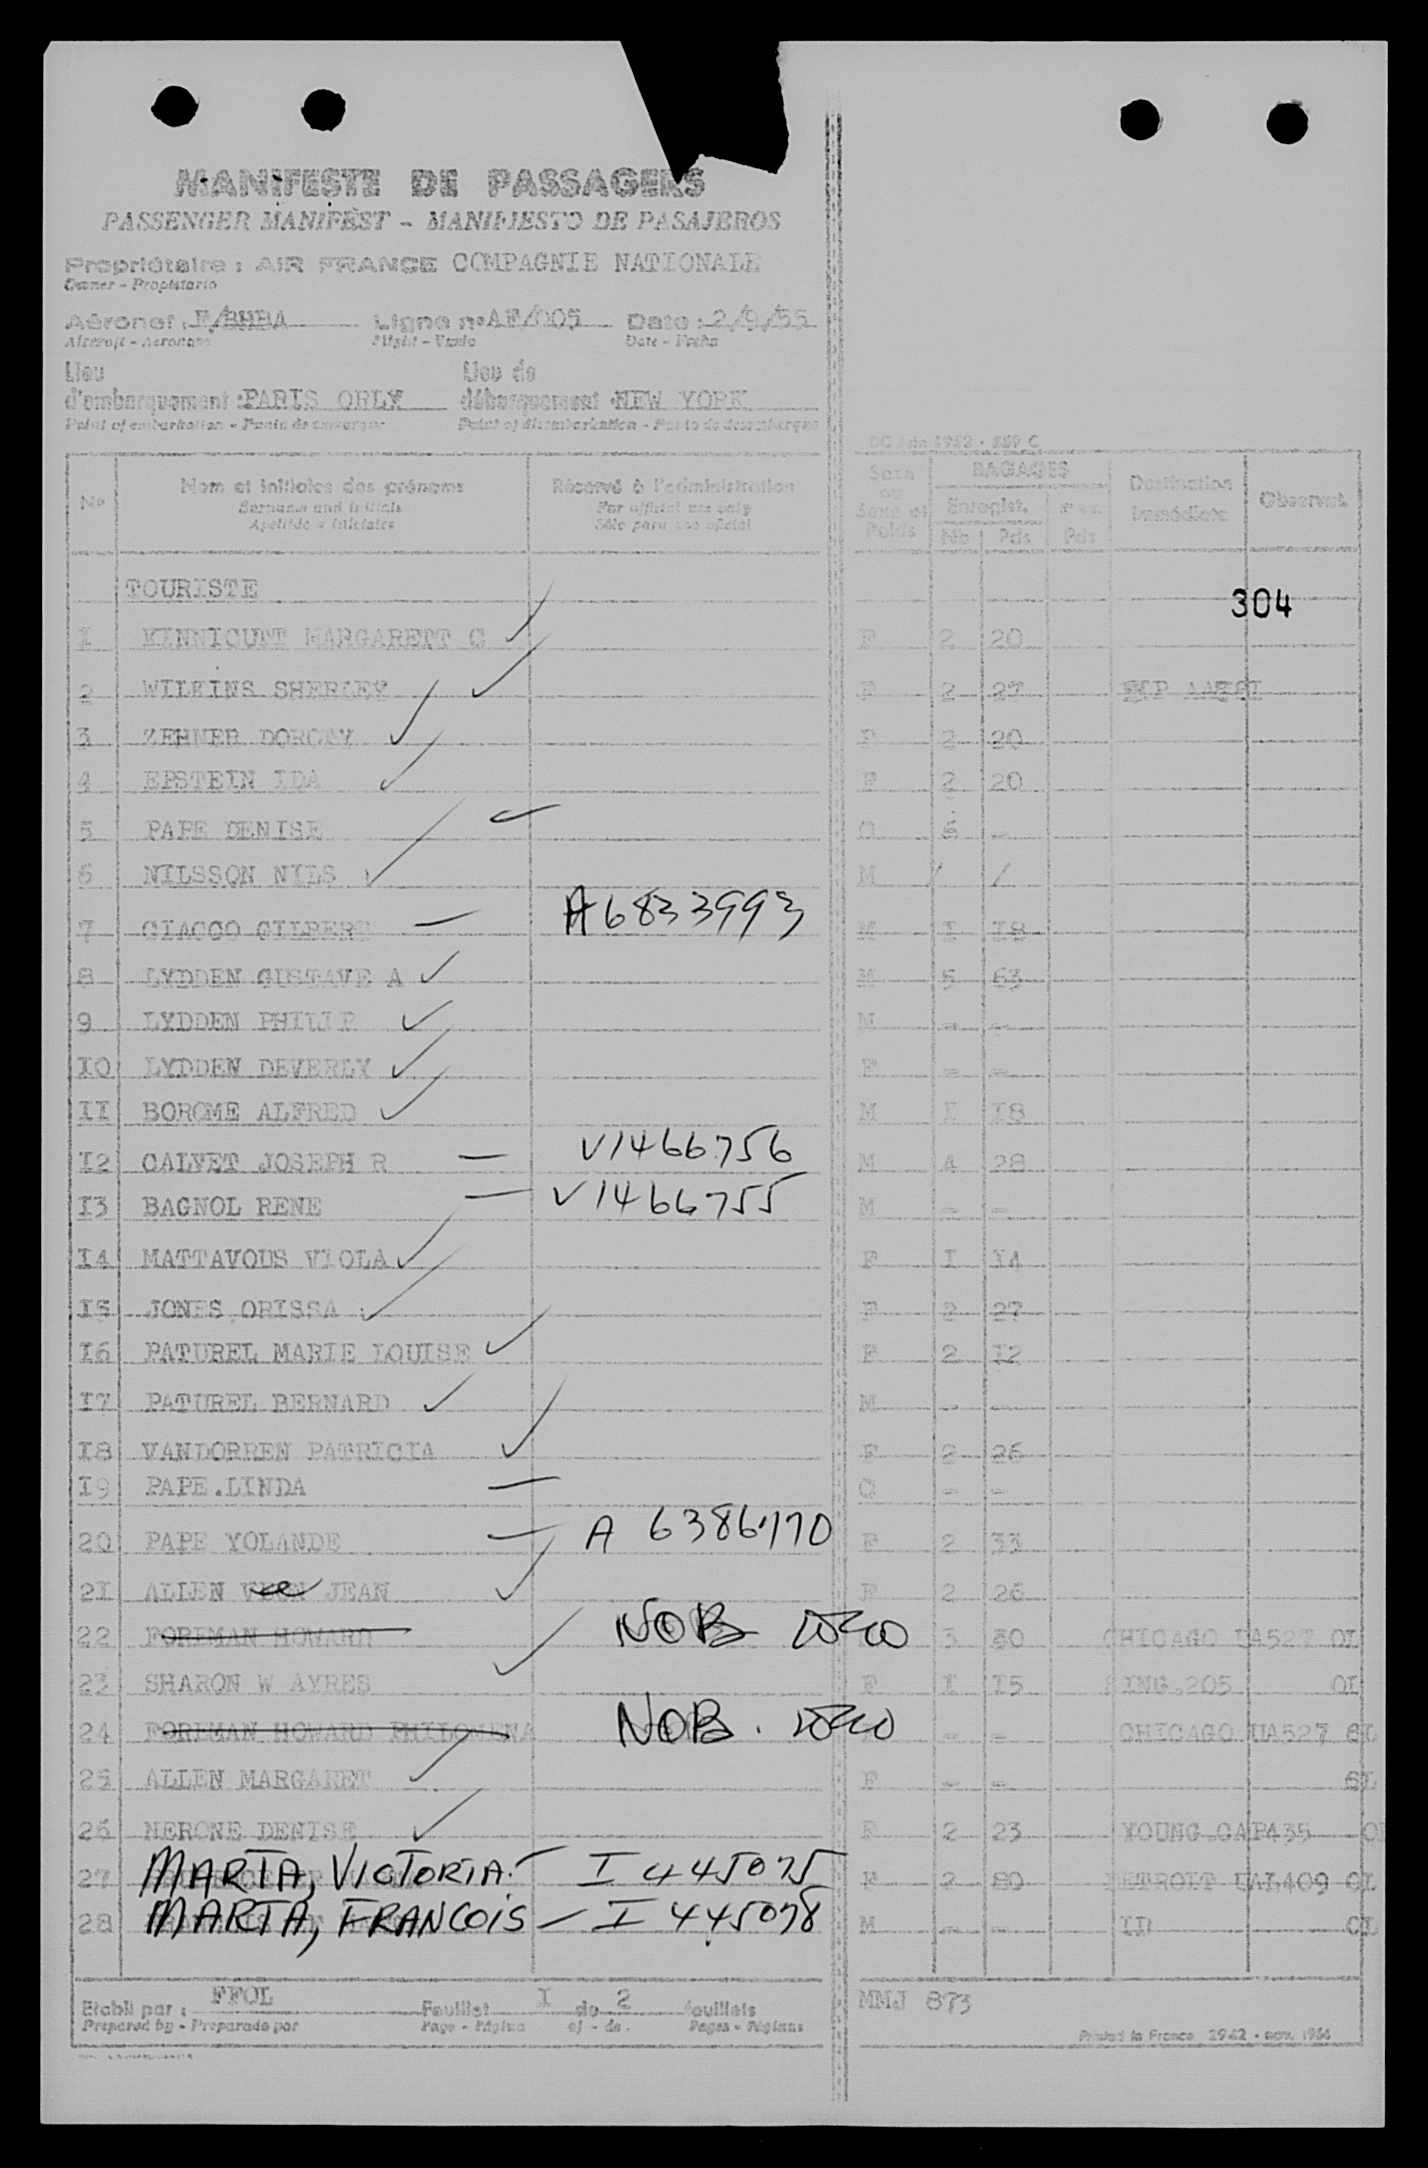 MANIFESTE DE PASSAGERS
PASSENGER MANIFEST - MANIFIESTO DE PASAJEROS
Propriétaire : AIR FRANCE COMPAGNIE NATIONALE
Owner - Propietario
Aéronef : F/BHBA Ligne n° AF/005 Date : 2/9/55
Aircraft - Aeronave Flight - Vuelo Date - Fecha
Lieu d'embarquement : PARIS ORLY Lieu de débarquement : NEW YORK
Point of embarkation - Punto de embarque Point of disembarkation - Punto de desembarque
N° Nom et initiales des prénoms Réservé à l'administration Sexe ou Sexe et Poids BAGAGES Destination immédiate Observat.
Surname and initials For official use only Enregist.
Apellido e iniciales Sólo para uso oficial Nb Pds Pds
TOURISTE
304
1 KINNICUTT MARGARETT C F 2 20
2 WILKINS SHERLEY F 2 27
3 ZEHNER DORCAY F 2 20
4 EPSTEIN IDA F 2 20
5 PAPE DENISE -
6 NILSSON NILS M / /
7 GIACCO GILBERT — A6833993 M I I8
8 LYDDEN GUSTAVE A M 5 63
9 LYDDEN PHILIP M - -
I0 LYDDEN DEVERLY F - -
II BOROME ALFRED M I I8
I2 CALVET JOSEPH R — V1466756 M 4 28
I3 BAGNOL RENE — V1466755 M - -
I4 MATTAVOUS VIOLA F I I4
I5 JONES ORISSA F 2 27
I6 PATUREL MARIE LOUISE F 2 I2
I7 PATUREL BERNARD M - -
I8 VANDORREN PATRICIA F 2 26
I9 PAPE.LINDA — - -
20 PAPE YOLANDE — A 6386170 F 2 33
2I ALLEN JEAN F 2 26
22 FOREMAN HOWARD NOB 3 CHICAGO UA527 OL
23 SHARON W AYRES F I I5 OL
24 FOREMAN HOWARD PHILOMENA NOB. - - CHICAGO UA527
25 ALLEN MARGARET F - -
26 NERONE DENISE F 2 23 YOUNG CAP435
27 MARTA, VICTORIA — I 445075 F 2 80 DETROIT UAL409 OL
28 MARTA, FRANCOIS — I 445078 M - - ID OL
Etabli par : FFOL Feuillet I de 2 feuillets MMJ 873
Prepared by - Preparado por Page - Página of - de Pages - Páginas
Printed in France